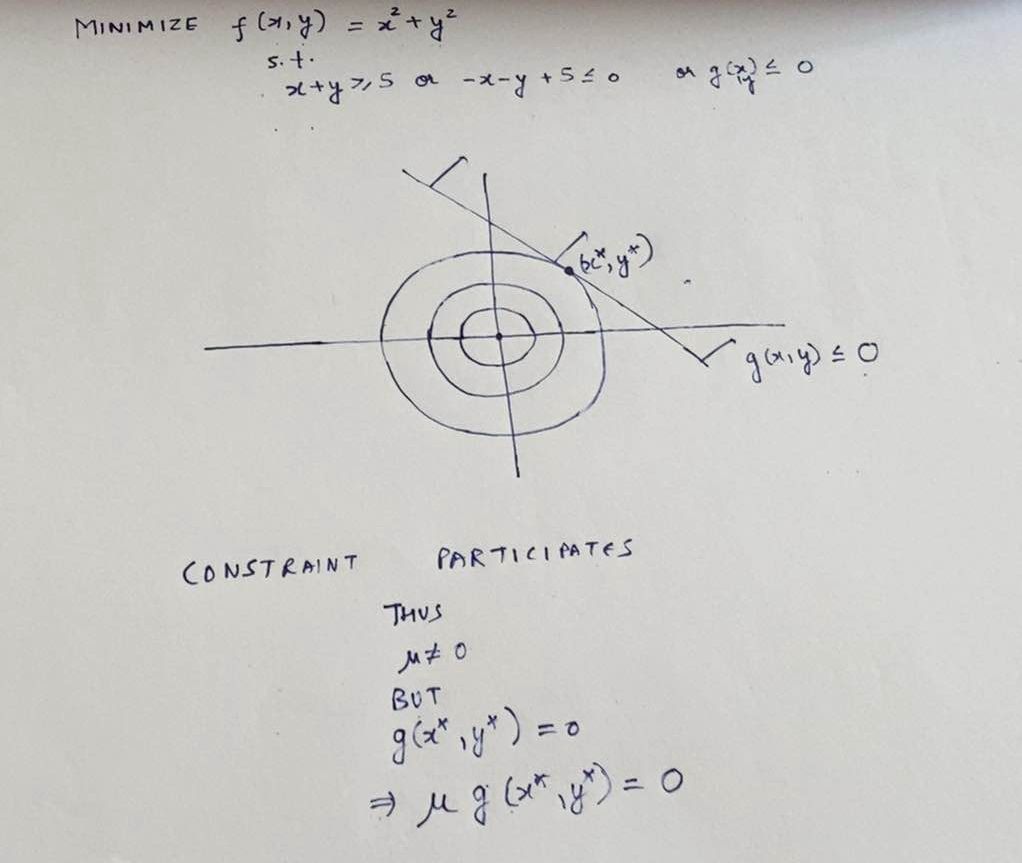 MINIMIZE f(x,y) = x² + y²
s.t.
x+y ≥ 5 or -x-y+5 ≤ 0 or g(x,y) ≤ 0
(x*, y*)
g(x,y) ≤ 0
CONSTRAINT PARTICIPATES
THUS
μ ≠ 0
BUT
g(x*, y*) = 0
⇒ μ g(x*, y*) = 0